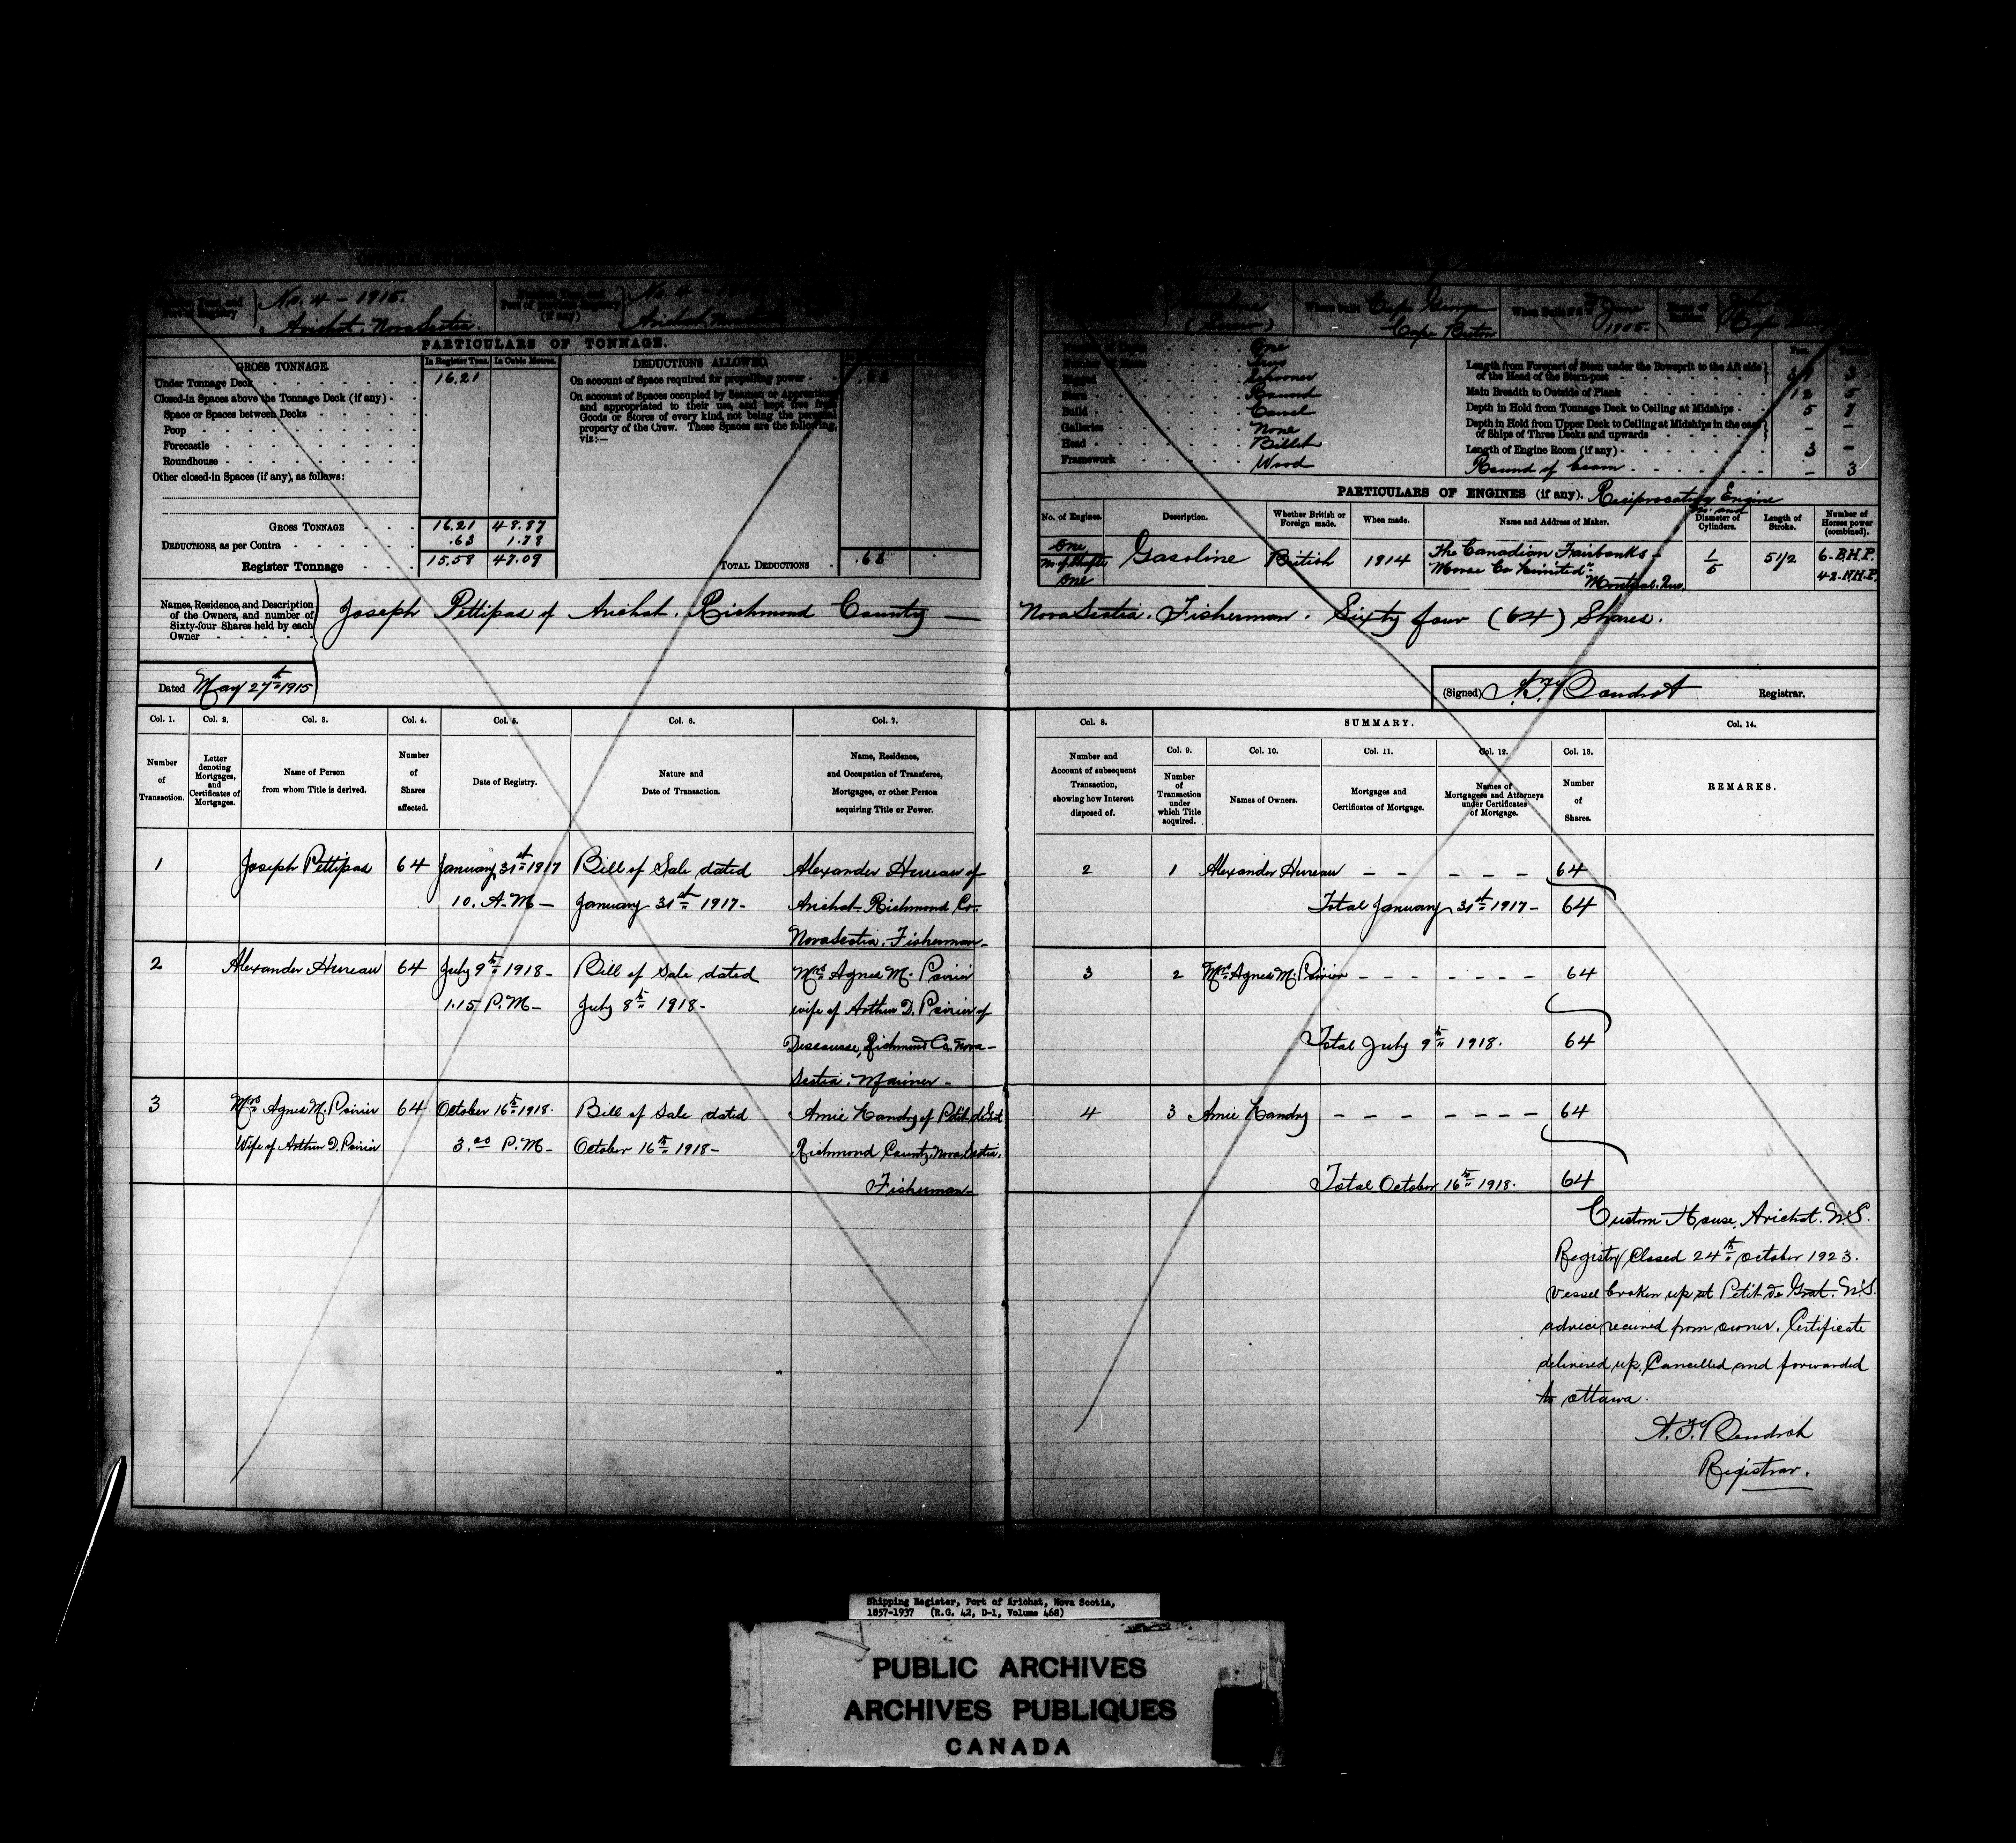 No. 4 - 1915.
Arichat. Nova Scotia.
No 4
Arichat
(Screw)
Where built
Cape George
Cape Breton
June
1905.
PARTICULARS OF TONNAGE.
GROSS TONNAGE
In Register Tons.
In Cubic Metres.
Under Tonnage Deck
16.21
Closed-in Spaces above the Tonnage Deck (if any)
Space or Spaces between Decks
Poop
Forecastle
Roundhouse
Other closed-in Spaces (if any), as follows:
GROSS TONNAGE
16.21 48.87
DEDUCTIONS, as per Contra
.63 1.78
Register Tonnage
15.58 47.09
DEDUCTIONS ALLOWED
On account of Space required for propelling power
.63
On account of Spaces occupied by Seamen or Apprentices,
and appropriated to their use, and kept free from
Goods or Stores of every kind, not being the personal
property of the Crew. These Spaces are the following,
viz:—
TOTAL DEDUCTIONS
.63
One
Two
Schooner
Stern
Round
Build
Carvel
Galleries
None
Head
Billet
Framework
Wood
Length from Forepart of Stem under the Bowsprit to the Aft side
of the Head of the Stern-post
3
Main Breadth to Outside of Plank
12 5
Depth in Hold from Tonnage Deck to Ceiling at Midships
5 7
Depth in Hold from Upper Deck to Ceiling at Midships in the case
of Ships of Three Decks and upwards
– –
Length of Engine Room (if any)
3 –
Round of beam
– 3
PARTICULARS OF ENGINES (if any). Reciprocating Engine
No. of Engines.
Description.
Whether British or
Foreign made.
When made.
Name and Address of Maker.
No. and
Diameter of
Cylinders.
Length of
Stroke.
Number of
Horses power
(combined).
One
No. of Shafts
One
Gasoline
British
1914
The Canadian Fairbanks -
Morse Co Limited
Montreal. Que.
1
5
5 1/2
6-B.H.P.
42-N.H.P.
Names, Residence, and Description
of the Owners, and number of
Sixty-four Shares held by each
Owner
Joseph Pettipas of Arichat. Richmond County
Nova Scotia. Fisherman. Sixty four (64) Shares.
Dated May 27th 1915
(Signed)
Registrar.
Col. 1.
Number
of
Transaction.
Col. 2.
Letter
denoting
Mortgages,
and
Certificates of
Mortgages.
Col. 3.
Name of Person
from whom Title is derived.
Col. 4.
Number
of
Shares
affected.
Col. 5.
Date of Registry.
Col. 6.
Nature and
Date of Transaction.
Col. 7.
Name, Residence,
and Occupation of Transferee,
Mortgagee, or other Person
acquiring Title or Power.
Col. 8.
Number and
Account of subsequent
Transaction,
showing how Interest
disposed of.
SUMMARY.
Col. 9.
Number
of
Transaction
under
which Title
acquired.
Col. 10.
Names of Owners.
Col. 11.
Mortgages and
Certificates of Mortgage.
Col. 12.
Names of
Mortgagees and Attorneys
under Certificates
of Mortgage.
Col. 13.
Number
of
Shares.
Col. 14.
REMARKS.
1
Joseph Pettipas
64
January 31st 1917
10. A.M —
Bill of Sale dated
January 31st 1917 -
Alexander Hureau of
Arichat. Richmond Co.
Nova Scotia. Fisherman -
2
1
Alexander Hureau – – – – –
64
Total January 31st 1917 -
64
2
Alexander Hureau
64
July 9th 1918 -
1.15 P.M -
Bill of Sale dated
July 8th 1918 -
Mrs Agnes M. Poirier
wife of Arthur D. Poirier of
Descousse, Richmond Co. Nova -
Scotia. Mariner -
3
2
Mrs Agnes M. Poirier - - - - - - -
64
Total July 9th 1918.
64
3
Mrs Agnes M. Poirier
Wife of Arthur D. Poirier
64
October 16th 1918.
3.00 P.M -
Bill of Sale dated
October 16th 1918 -
Amie Landry of Petit de Grat
Richmond County, Nova Scotia.
Fisherman -
4
3
Amie Landry - - - - - - - -
64
Total October 16th 1918.
64
Custom House, Arichat. N.S.
Registry Closed 24th October 1923.
Vessel broken up at Petit de Grat. N.S.
advice received from owner. Certificate
delivered up, Cancelled and forwarded
to Ottawa.
Registrar.
Shipping Register, Port of Arichat, Nova Scotia,
1857-1937 (R.G. 42, D-1, Volume 468)
PUBLIC ARCHIVES
ARCHIVES PUBLIQUES
CANADA